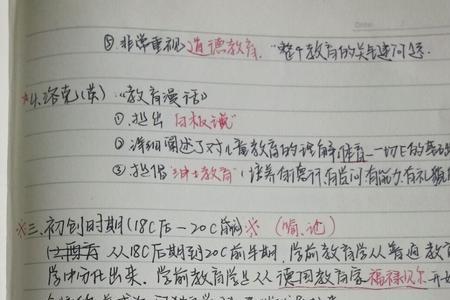 ⑤ 非常重视道德教育，"整个教育的关键问题.
*4.洛克(英)《教育漫话》
① 提出"白板说"
② 详细阐述了对儿童教育的理解,体育一切的基础
③ 提倡"绅士教育"(培养有德行,有学问有能力有礼貌
*三、初创时期(18C后—20C前期)※ (简、论)
从18C后期到20C前半期,学前教育学从普通教育
学中分化出来。学前教育学是从德国教育家福禄贝尔开始